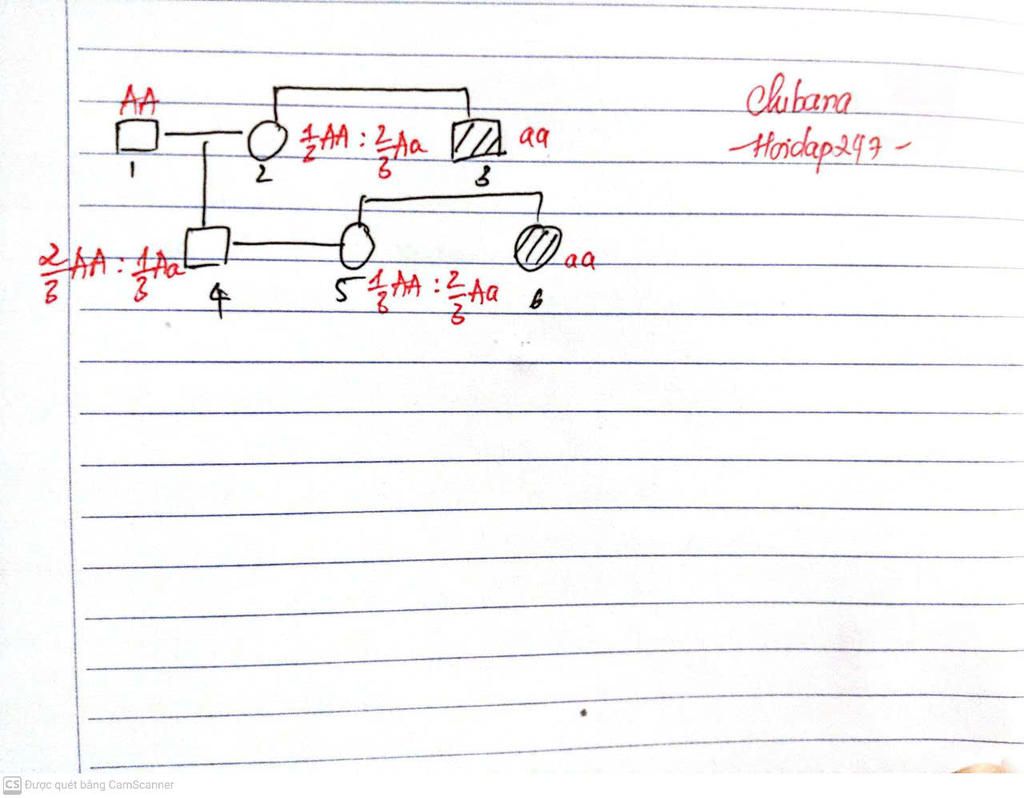 AA
1
2
1/3 AA : 2/3 Aa
3
aa
Chibana
-Hoidap247-
2/3 AA : 1/3 Aa
4
5
1/3 AA : 2/3 Aa
6
aa
CS Được quét bằng CamScanner